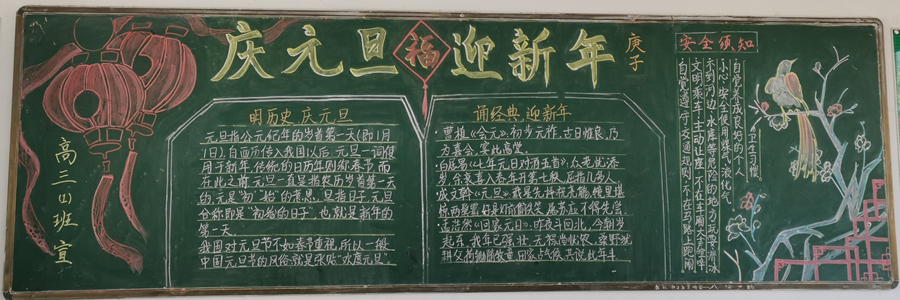 庆元旦 福 迎新年
庚子
高三(1)班宣
明历史 庆元旦
元旦指公元纪年的岁首第一天(即1月
1日).自西历传入我国以后,元旦一词便
用于新年,传统的日历年则称春节.而
在此之前,元旦一直是指农历岁首第一天
的.元是"初""始"的意思,旦指日子,元旦
合称即是"初始的日子",也就是新年的
第一天.
我国对元旦节不如春节重视,所以一般
中国元旦节的风俗就是张贴"欢度元旦".
诵经典 迎新年
曹植《会元》:初岁元祚,吉日惟良,乃
为嘉会,宴此高堂.
成文幹《元旦》:戴星先捧祝尧觞,镜里堪
惊两鬓霜.好是灯前偷失笑,屠苏应不得先尝.
孟浩然《田家元日》:昨夜斗回北,今朝岁
起东.我年已强壮,无禄尚忧农.桑野就
耕父,荷锄随牧童.田家占气候,共说此年丰.
安全须知
自觉养成良好的个人
卫生习惯
小心、安全使用煤气、液化气
不到河边、水库等危险的地方玩耍、滑冰
自觉遵守交通规则,不在马路上跑闹